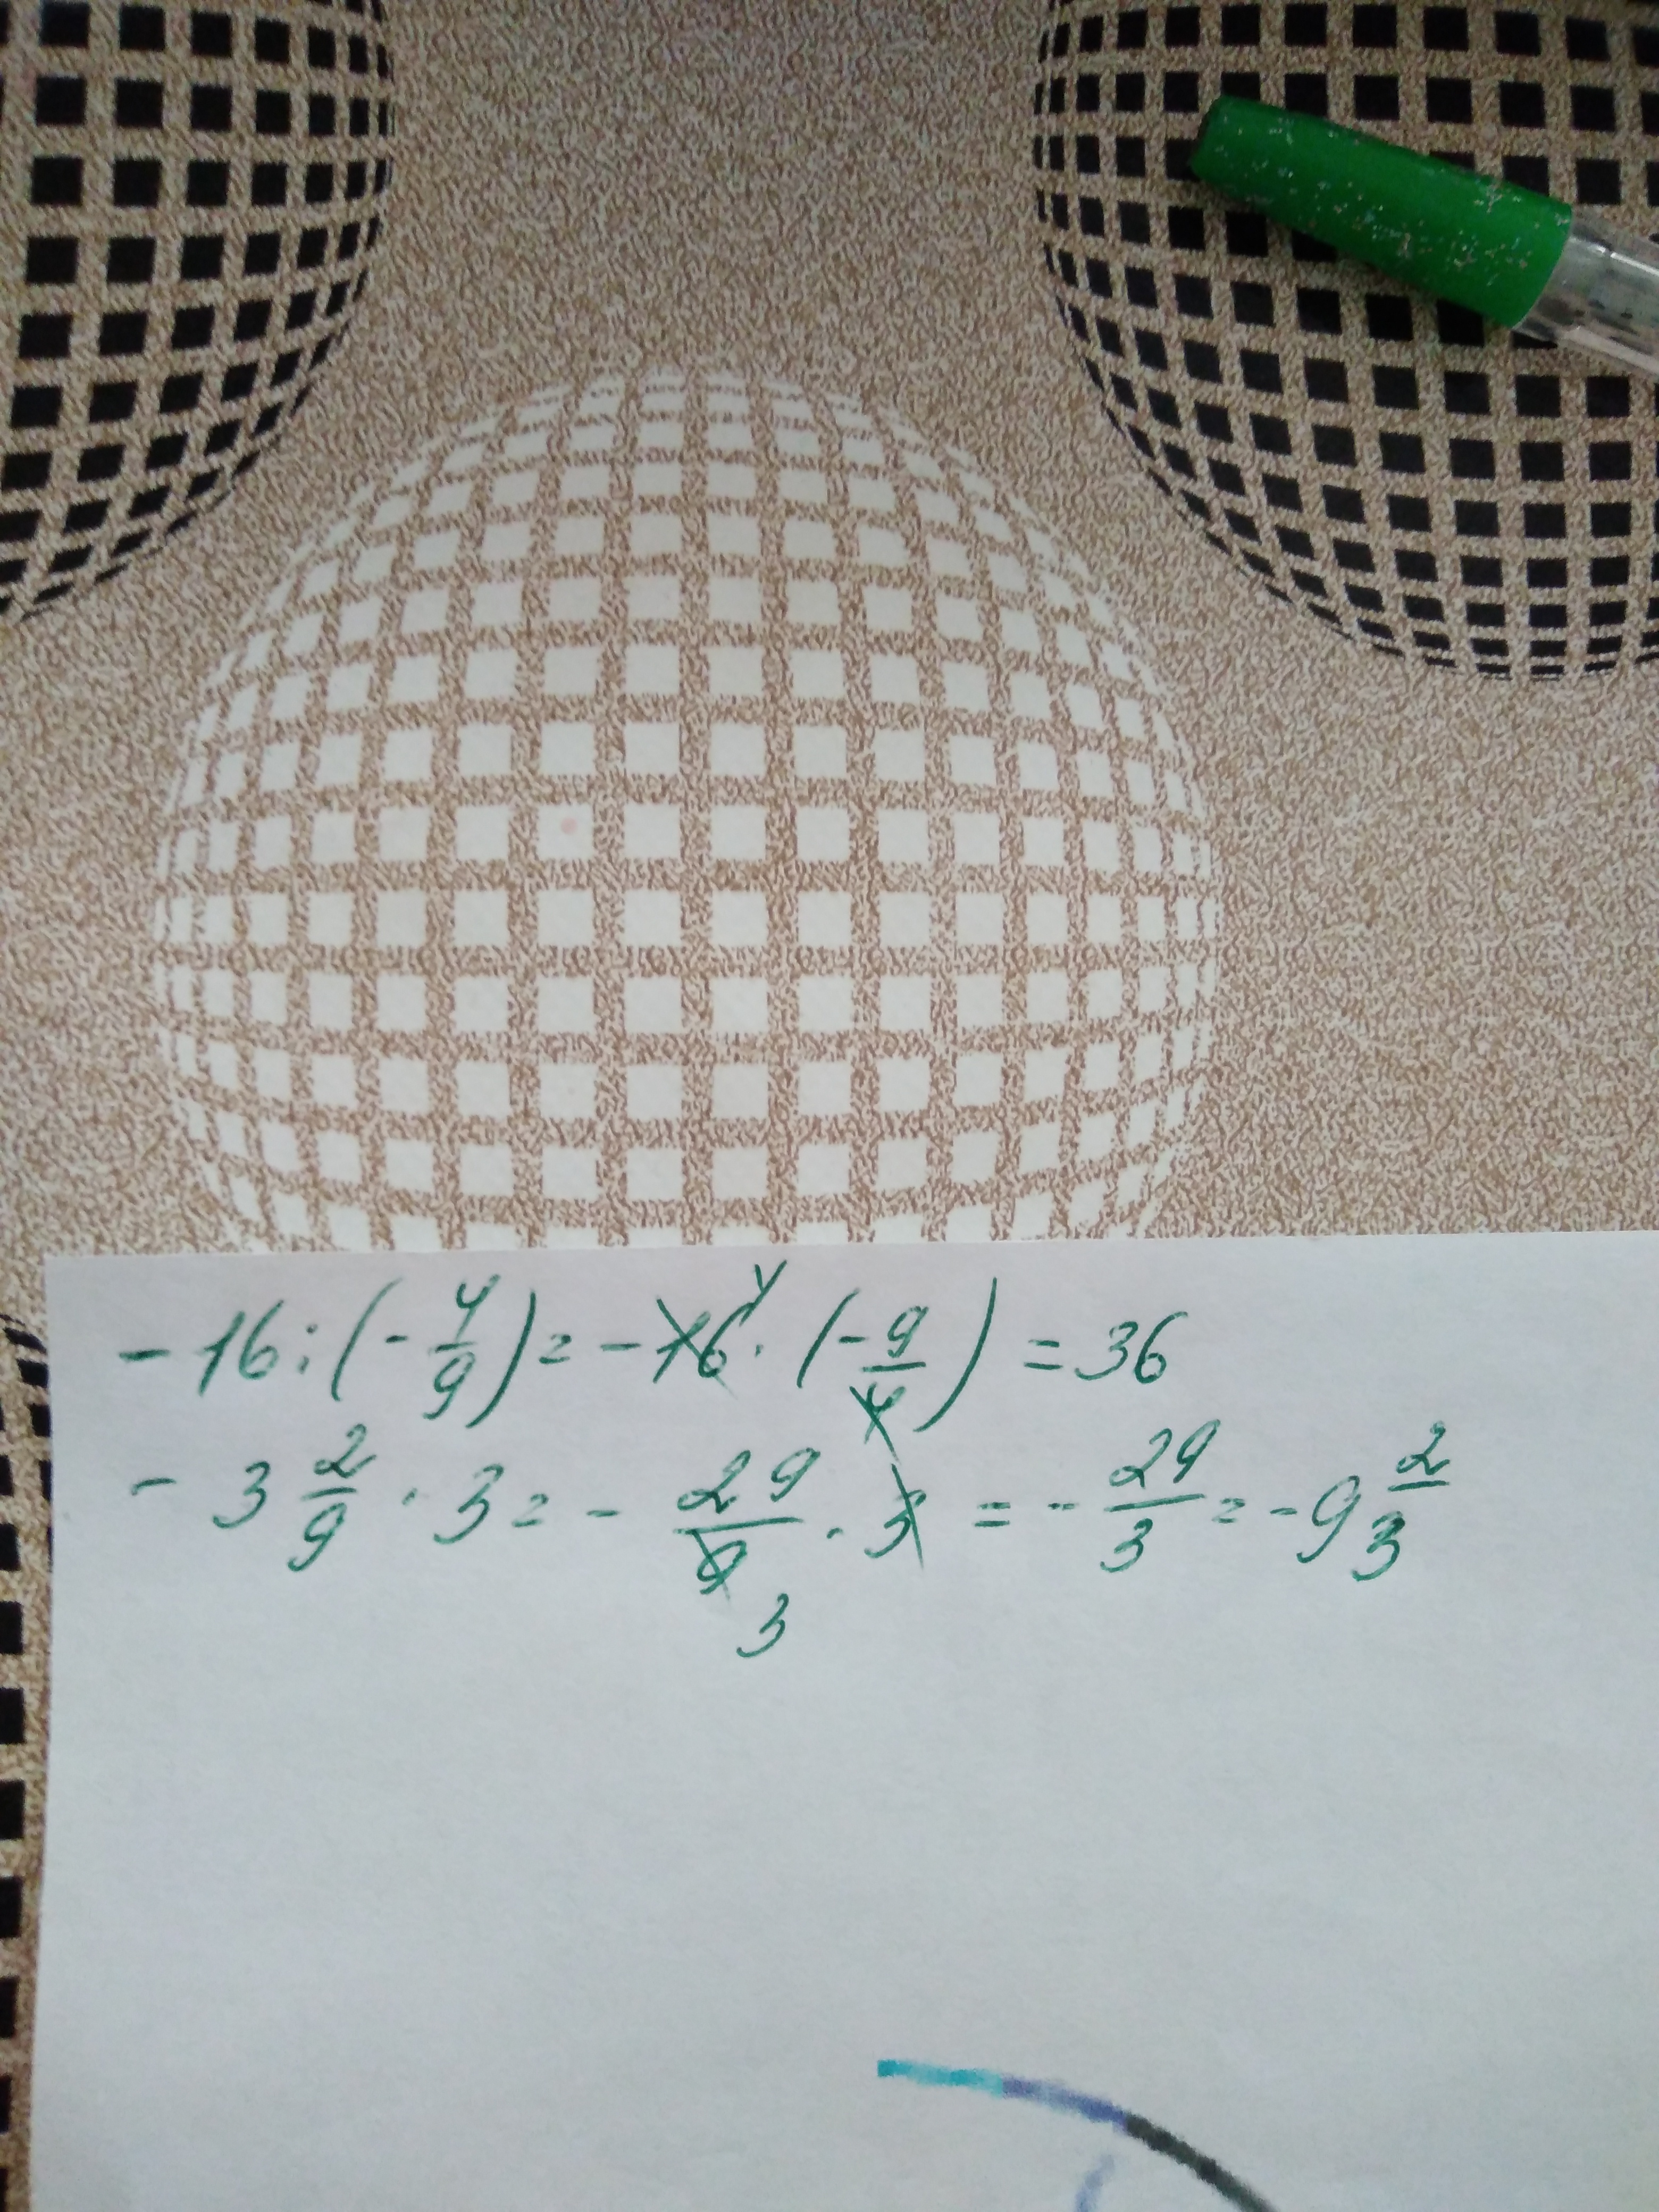 - 16 : (- 4/9) = - 16 4 · (- 9/4) = 36
- 3 2/9 · 3 = - 29/9 3 · 3 = - 29/3 = - 9 2/3